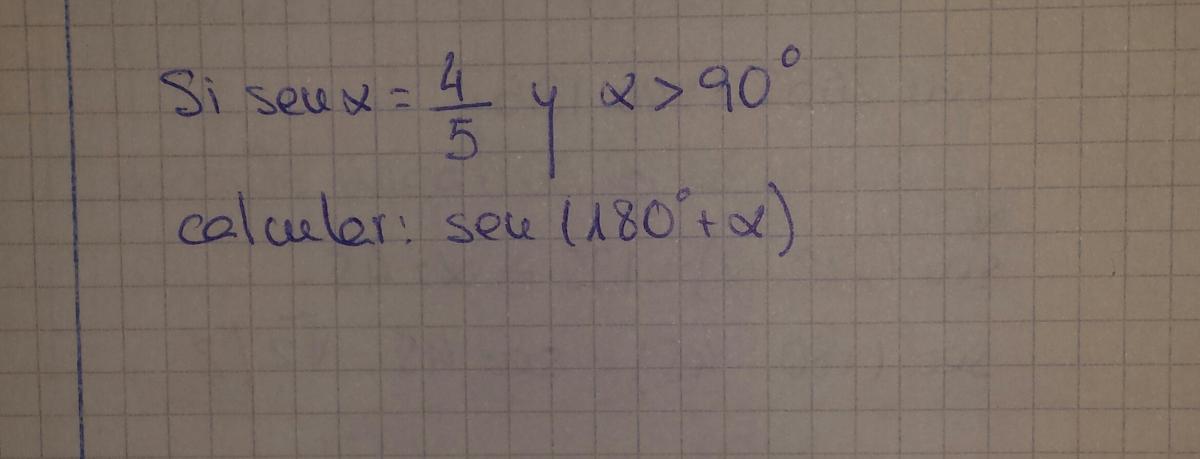 Si sen α = 4/5 y α > 90°
calcular: sen (180° + α)